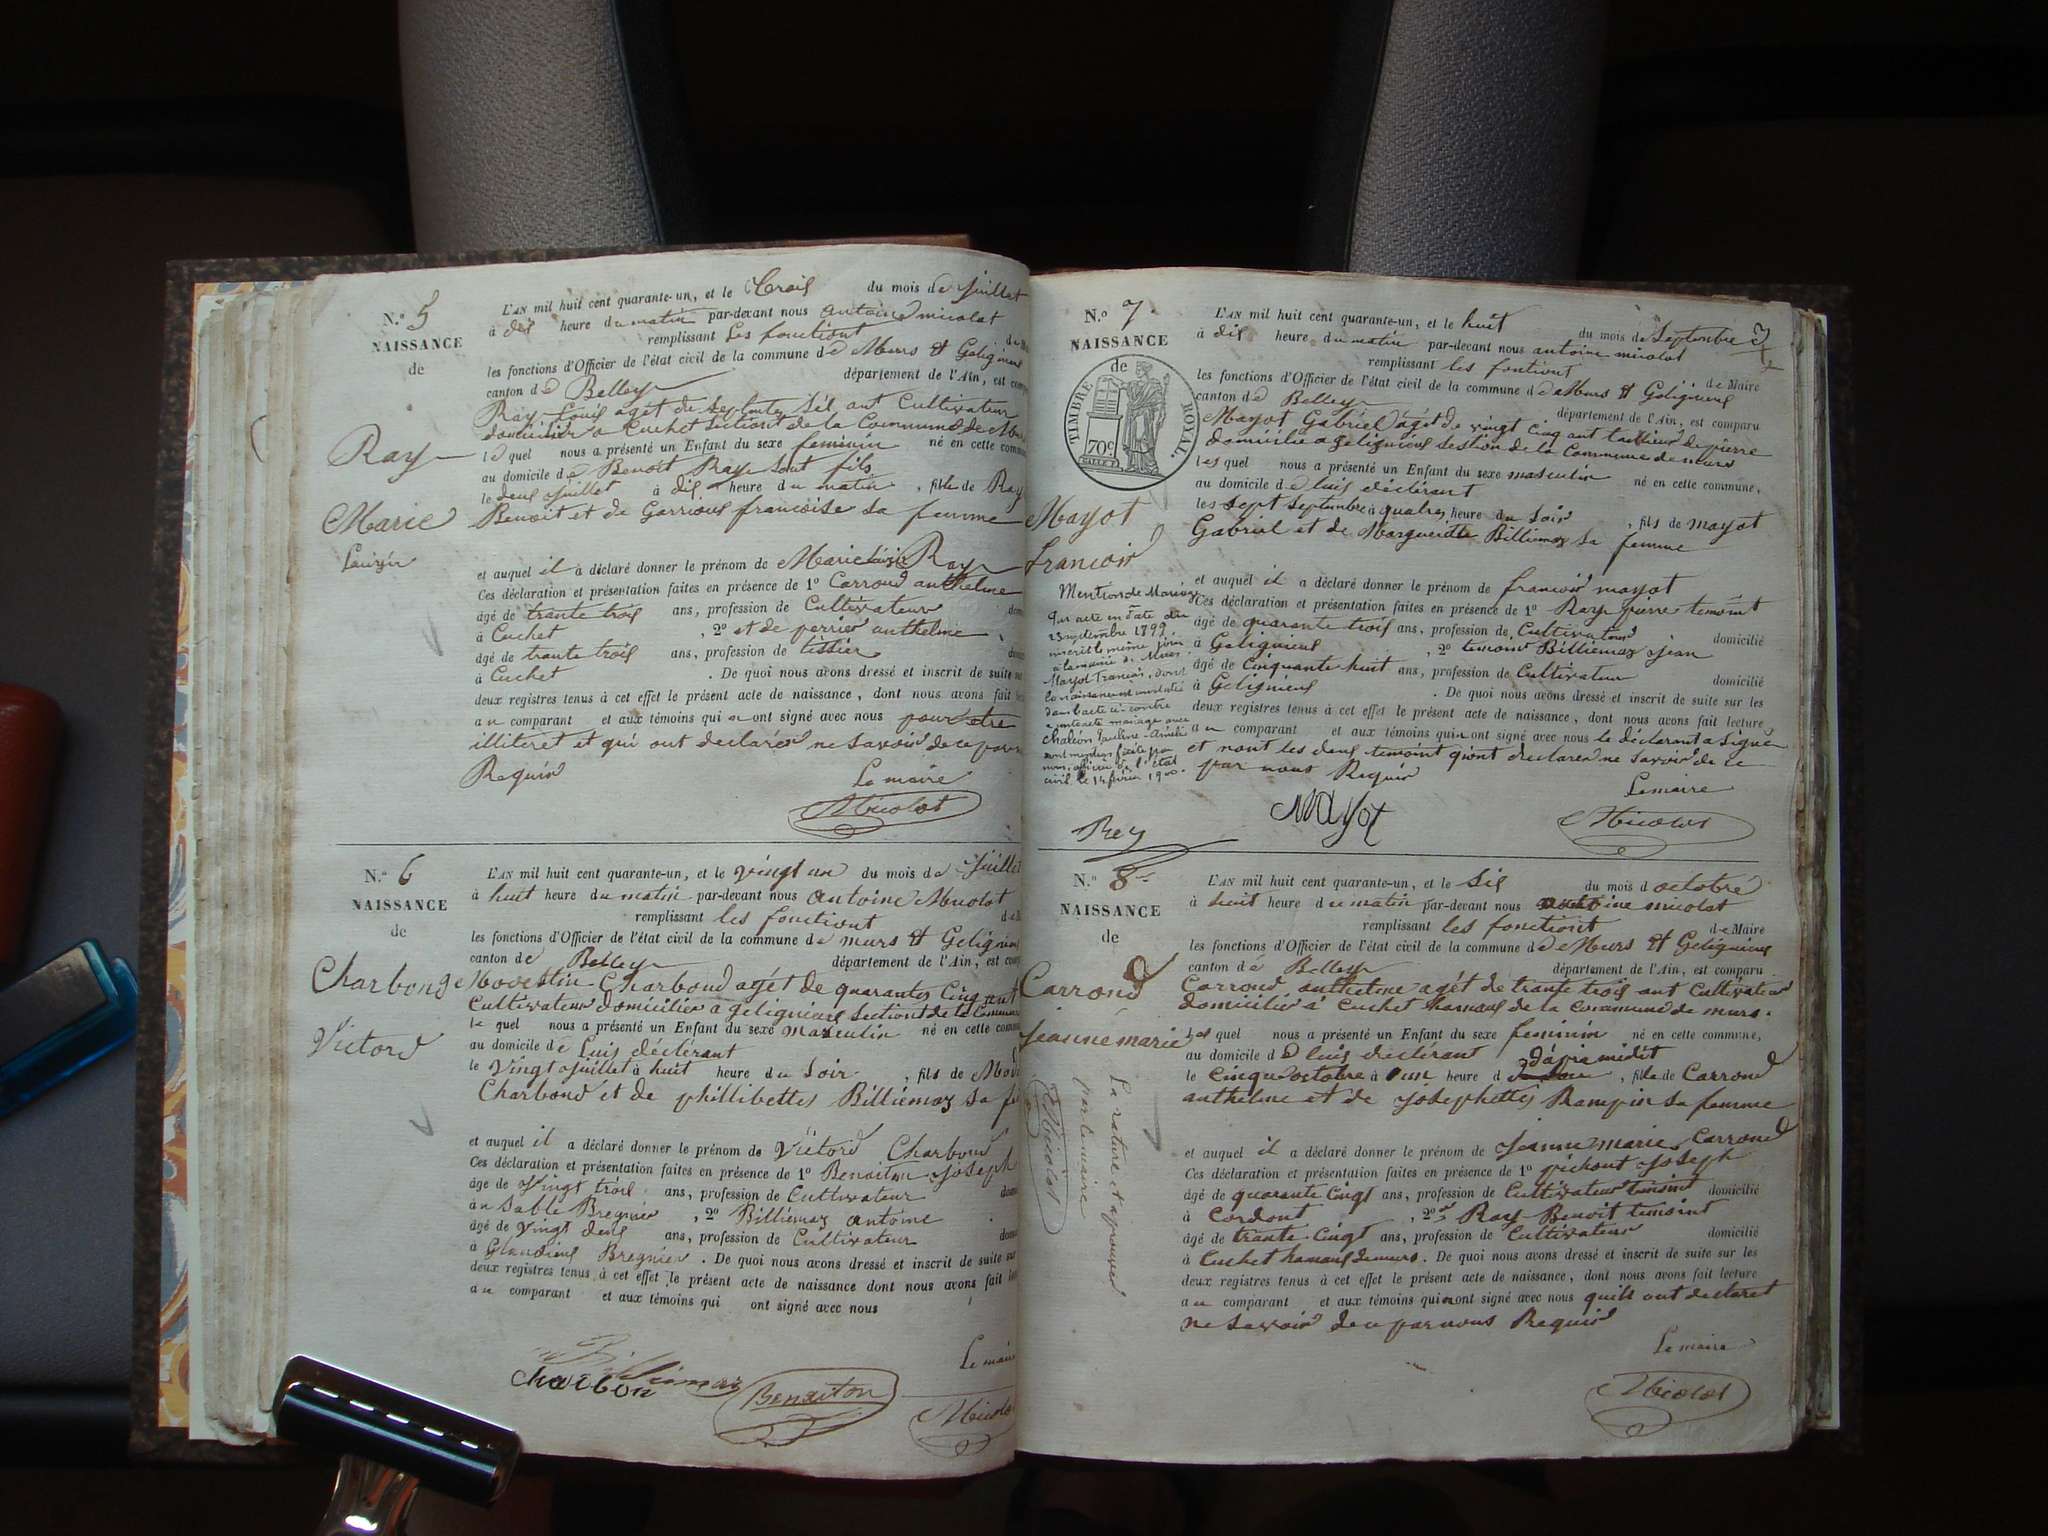 N.º 5
NAISSANCE
de
Ray
Marie
Louise
L'AN mil huit cent quarante-un, et le trois du mois de juillet
à dix heure du matin par-devant nous antoine micolot
remplissant les fonctiont
les fonctions d'Officier de l'état civil de la commune de Murs et Gelignieux
canton de Belley département de l'Ain, est
Ray Louis agét de septente six ant Cultivateur
domicilier a Cuchet sectiont de la Commune de
le quel nous a présenté un Enfant du sexe feminin né en cette
au domicile de Benoit Ray sont fils
le deux juillet à dix heure du matin, fille de Ray
Benoit et de Garrioud francoise sa femme
et auquel il a déclaré donner le prénom de Marie Louise Ray
Ces déclaration et présentation faites en présence de 1º Carroud anthelme
âgé de trante trois ans, profession de Cultivateur
à Cuchet, 2º et de perrier anthelme
âgé de trante trois ans, profession de tissier
à Cuchet. De quoi nous avons dressé et inscrit de suite
deux registres tenus à cet effet le présent acte de naissance, dont nous avons fait
au comparant et aux témoins qui n ont signé avec nous pour etre
illiteret et qui ont declarér ne savoir de ce par
Requis
Le maire
Micolot
N.º 6
NAISSANCE
de
Charbond
Victord
L'AN mil huit cent quarante-un, et le vingt un du mois de juillet
à huit heure du matin par-devant nous antoine Micolot
remplissant les fonctiont
les fonctions d'Officier de l'état civil de la commune de murs et Gelignieux
canton de Belley département de l'Ain, est
Charboud agét de quarante Cinq ant
Cultivateur domicilier a gelignieux sectiont de la Commune
le quel nous a présenté un Enfant du sexe masculin né en cette
au domicile de Luis déclérant
le Vingt juillet à huit heure du soir, fils de
Charboud et de phillibettes Billiemaz sa
et auquel il a déclaré donner le prénom de Victord Charboud
Ces déclaration et présentation faites en présence de 1º Benaiton Joseph
âgé de Vingt trois ans, profession de Cultivateur
au Sable Bregnier, 2º Billiemaz antoine
âgé de vingt deux ans, profession de Cultivateur
à Glandieux Bregnier. De quoi nous avons dressé et inscrit de suite sur
deux registres tenus à cet effet le présent acte de naissance dont nous avons fait
au comparant et aux témoins qui ont signé avec nous
Le maire
Billiemaz
Charbon
Benaiton
Micolot
N.º 7
NAISSANCE
de
TIMBRE ROYAL
70c
Mayot
francois
Mention de Mariage
Par acte en date du
23 septembre 1899
inscrit le même jour
à la mairie de Murs
Mayot Francois, dont
la naissance est constatée
dans l'acte ci-contre
a contracté mariage avec
Chaléon Pauline
civil le 14 février 1900.
Rey
L'AN mil huit cent quarante-un, et le huit du mois de septembre
à dix heure du matin par-devant nous antoine micolot
remplissant les fontiont
les fonctions d'Officier de l'état civil de la commune de Murs et Gelignieux de Maire
canton de Belley département de l'Ain, est comparu
Mayot Gabriel agét de vingt Cinq ant tailleur de pierre
domicilié a gelignieux section de la Commune de murs
les quel nous a présenté un Enfant du sexe masculin né en cette commune,
au domicile de luis déclérant
les sept septembre à quatres heure du soir, fils de mayot
Gabriel et de Margueritte Billiemaz sa femme
et auquel il a déclaré donner le prénom de francois mayot
Ces déclaration et présentation faites en présence de 1º Ray pierre temoint
âgé de quarante trois ans, profession de Cultivateur domicilié
à Gelignieux, 2º temoint Billiemaz jean
âgé de Cinquante huit ans, profession de Cultivateur domicilié
à Gelignieux. De quoi nous avons dressé et inscrit de suite sur les
deux registres tenus à cet effet le présent acte de naissance, dont nous avons fait lecture
au comparant et aux témoins qui n ont signé avec nous le déclarant a signér
et nont les deux temoint qiont declarer ne savoir de ce
par nous Requis
Le maire
Mayot
Micolot
N.º 8
NAISSANCE
de
Carroud
jeanne marie
La rature est approuver
par le maire
Micolot
L'AN mil huit cent quarante-un, et le six du mois d octobre
à huit heure du matin par-devant nous antoine micolot
remplissant les fonctiont de Maire
les fonctions d'Officier de l'état civil de la commune de Murs et Gelignieux
canton de Belley département de l'Ain, est comparu
Carroud anthelme agét de trante trois ant Cultivateur
domicilier à Cuchet hamaux de la commune de murs.
les quel nous a présenté un Enfant du sexe feminin né en cette commune,
au domicile de luis declérant
le cinque octobre à une heure d dapré midit, fille de Carroud
anthelme et de josephettes Rampin sa femme
et auquel il a déclaré donner le prénom de jeanne marie Carroud
Ces déclaration et présentation faites en présence de 1º pichout joseph
âgé de quarante cinqt ans, profession de Cultivateur temoint domicilié
à Cordont, 2º Ray Benoit temoint
âgé de trante cinqt ans, profession de Cultivateur domicilié
à Cuchet hamaux de murs. De quoi nous avons dressé et inscrit de suite sur les
deux registres tenus à cet effet le présent acte de naissance, dont nous avons fait lecture
au comparant et aux témoins qui n ont signé avec nous quils ont declaret
ne savoir de ce par nous Requis
Le maire
Micolot